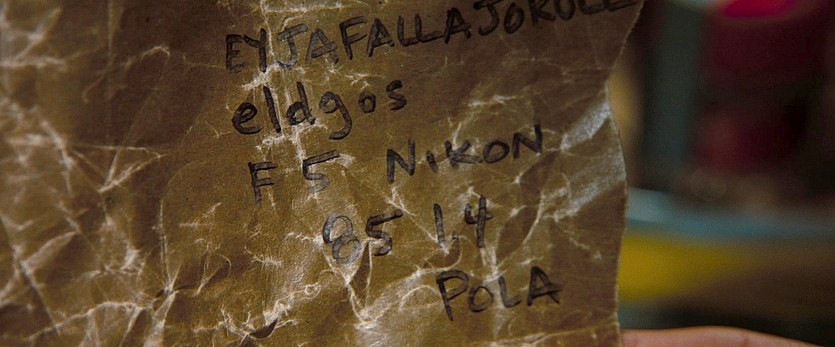 EYJAFALLAJOKULL
eldgos
F5 NIKON
85 1.4
POLA